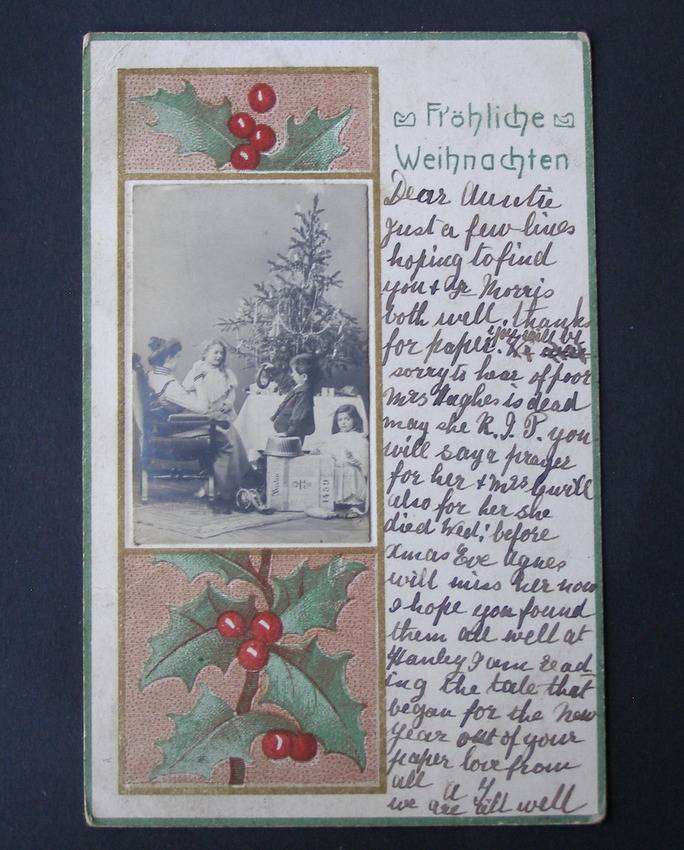 Fröhliche
Weihnachten
Dear Auntie
just a few lines
hoping to find
you & Mr Morris
both well, thanks
for paper. you will be
sorry to hear of poor
Mrs Hughes is dead
may she R.I.P. you
will say a prayer
for her & Mrs
also for her she
died Wed: before
Xmas Eve Agnes
will miss her now
I hope you found
them all well at
Hanley I am read-
ing the tale that
began for the New
Year out of your
paper love from
all A Y
we are all well
1459